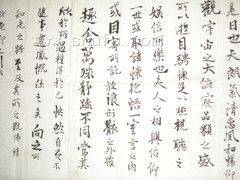 是日也天朗氣清惠風和暢仰
觀宇宙之大俯察品類之盛
所以遊目騁懷足以極視聽之
娛信可樂也夫人之相與俯仰
一世或取諸懷抱悟言一室之內
或因寄所託放浪形骸之外雖
趣舍萬殊靜躁不同當其
欣於所遇暫得於己快然自足不
隨事遷感慨係之矣向之所
知老之將至及其所之既倦情